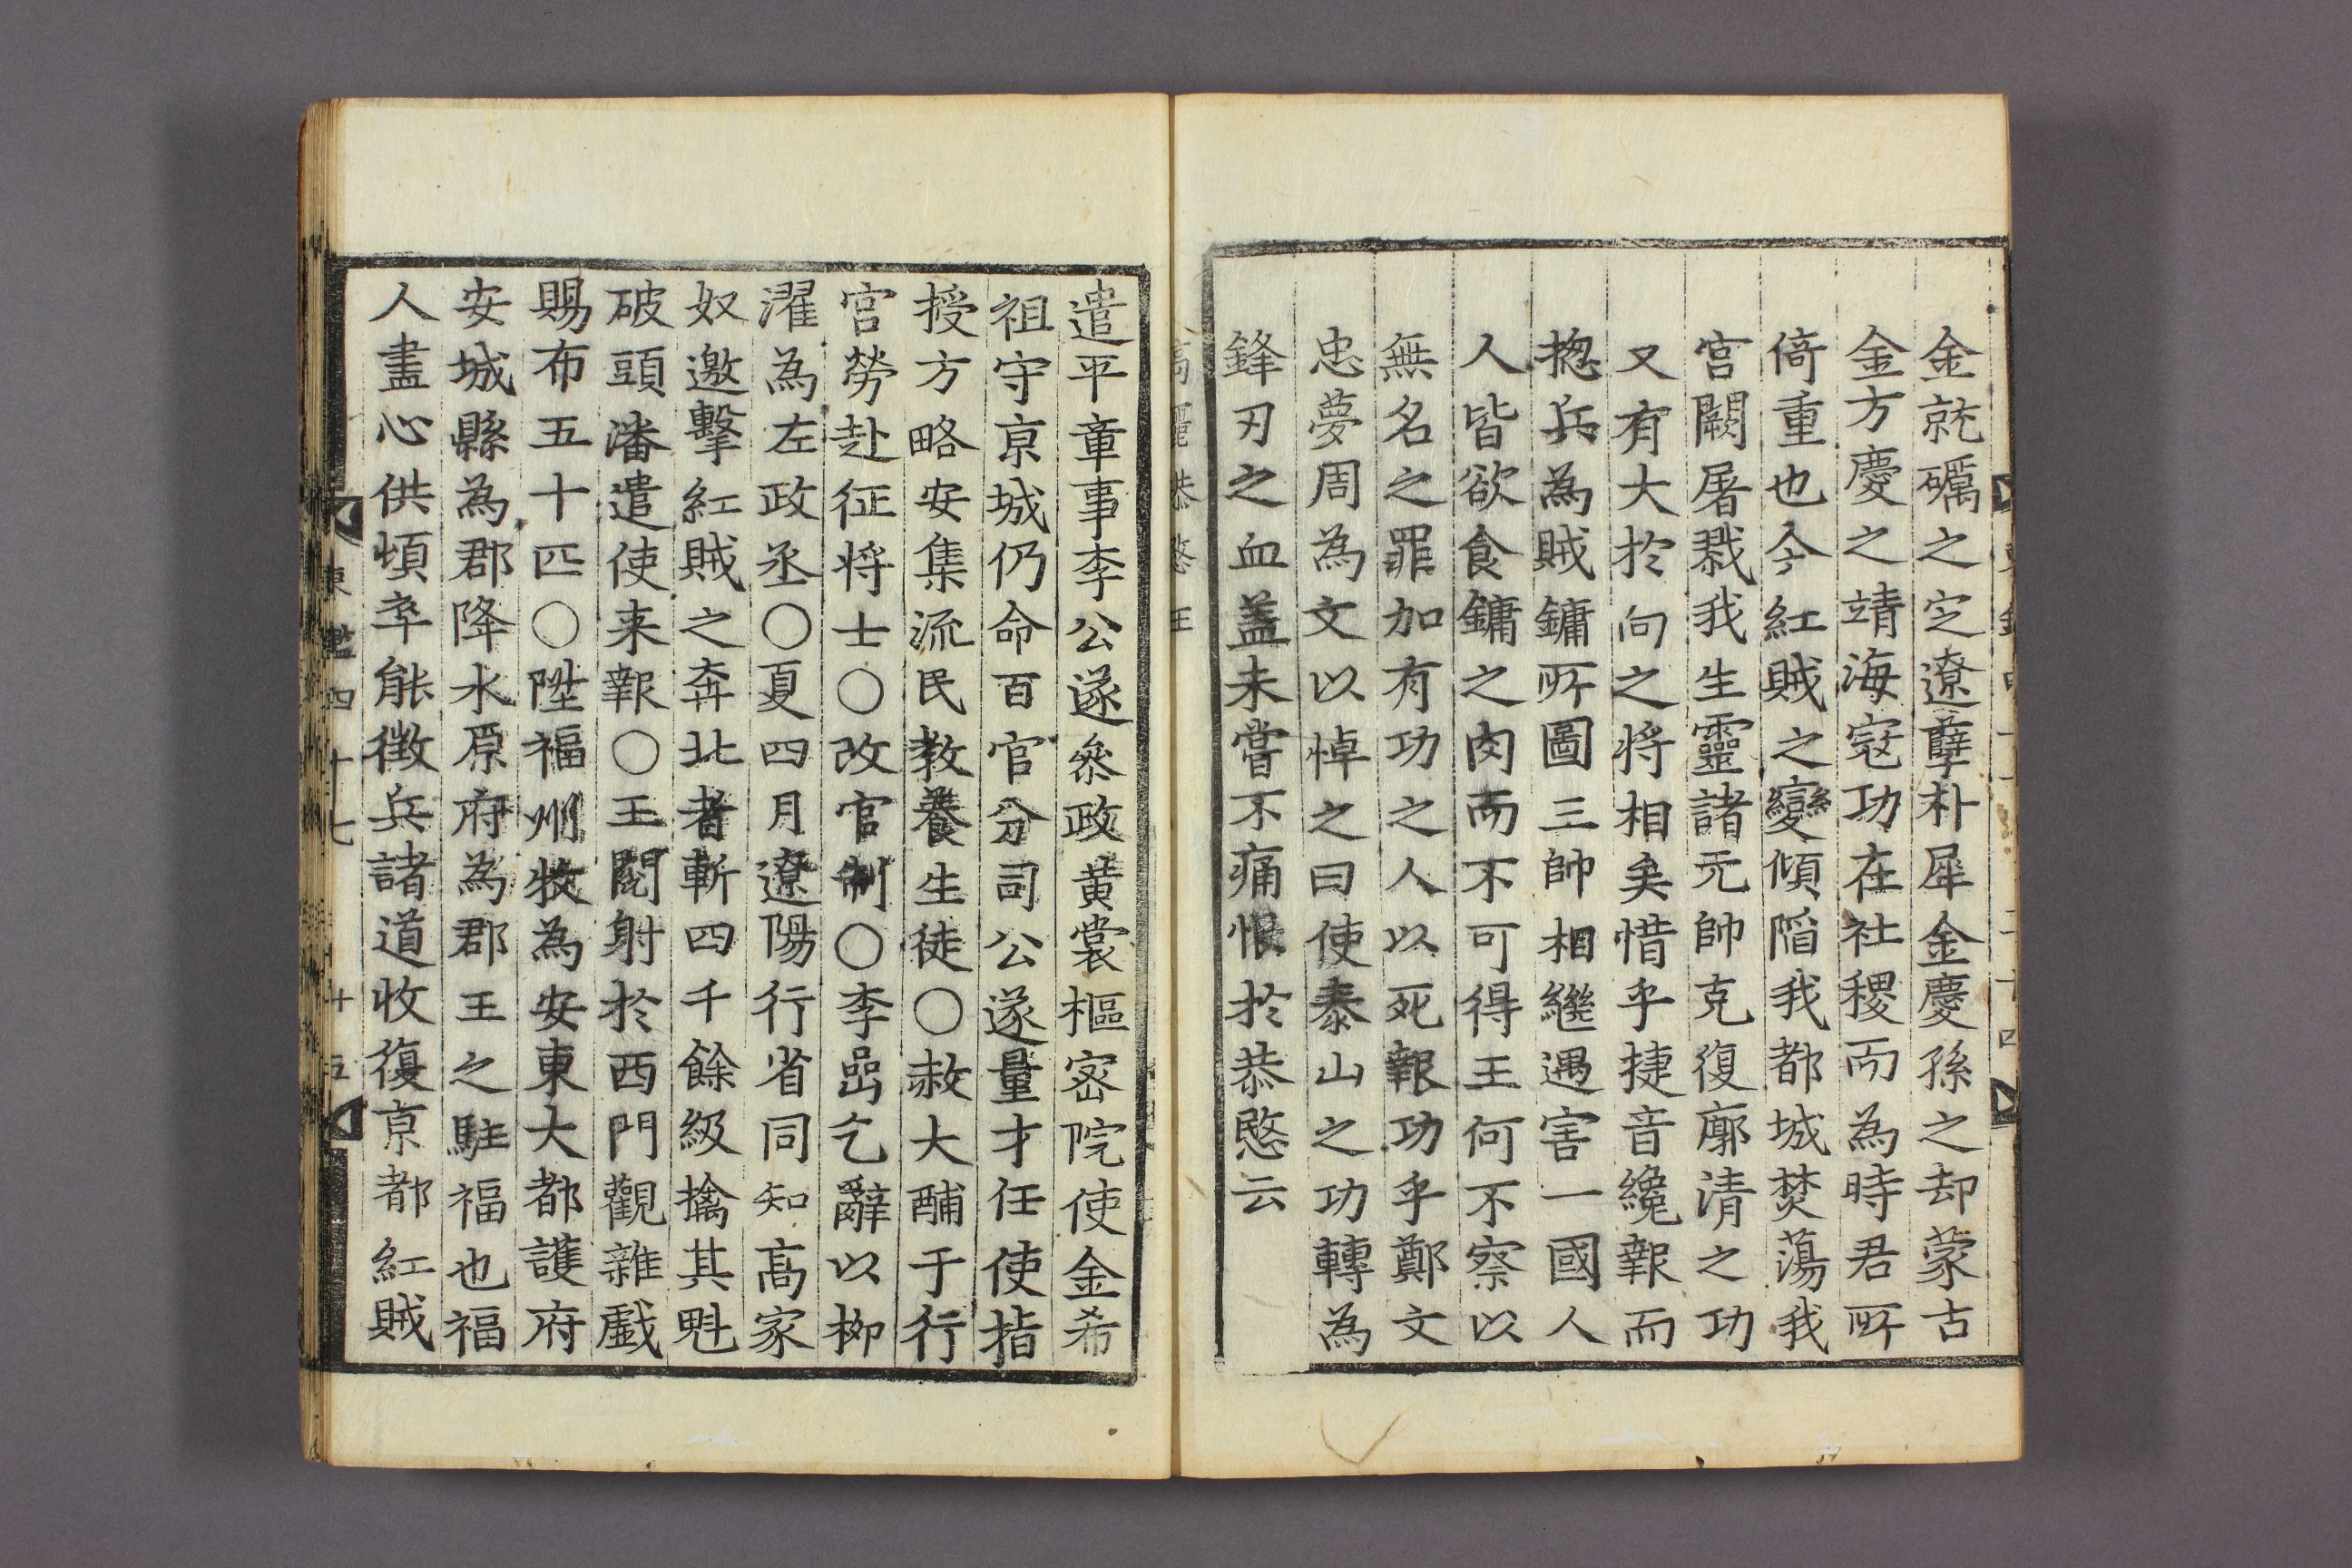 金就礪之定遼孽朴犀金慶孫之却蒙古
金方慶之靖海寇功在社稷而為時君所
倚重也今紅賊之變傾陷我都城焚蕩我
宮闕屠戮我生靈諸元帥克復廓清之功
又有大於向之將相矣惜乎捷音纔報而
揔兵為賊鏞所圖三帥相繼遇害一國人
人皆欲食鏞之肉而不可得王何不察以
無名之罪加有功之人以死報功乎鄭文
忠夢周為文以悼之曰使泰山之功轉為
鋒刃之血盖未嘗不痛恨於恭愍云
高麗恭愍王
遣平章事李公遂叅政黄裳樞密院使金希
祖守京城仍命百官分司公遂量才任使指
授方略安集流民教養生徒○赦大酺于行
宮勞赴征将士○改官制○李嵒乞辭以栁
濯為左政丞○夏四月遼陽行省同知高家
奴邀擊紅賊之奔北者斬四千餘級擒其魁
破頭潘遣使来報○王閱射於西門觀雜戲
賜布五十匹○陞福州牧為安東大都護府
安城縣為郡降水原府為郡王之駐福也福
人盡心供頓率能徵兵諸道收復京都紅賊
東鑑四十七
十五